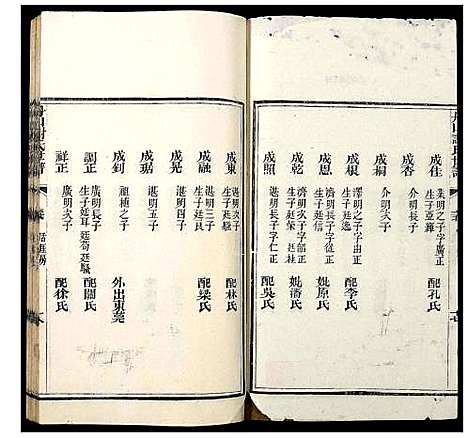 成佳 業明之子字廣正 生子亞鋒 配孔氏
成杏 介明長子
成桐 介明次子
成根 澤明之子字由正 生子廷逸 配李氏
成恩 濟明長子字正 生子廷 娶原氏
成乾 濟明次子字韶正 生子廷 廷枝 娶潘氏
成 湛明長子字仁正 配吳氏
成東 湛明次子 生子廷驥 配林氏
成融 湛明三子 生子廷良 配梁氏
成光 湛明四子
成琚 湛明五子
成釗 顯極之子 外出東莞
調正 廣明長子 生子廷耳 廷蔔 廷驥 配關氏
祥正 廣明次子 配徐氏